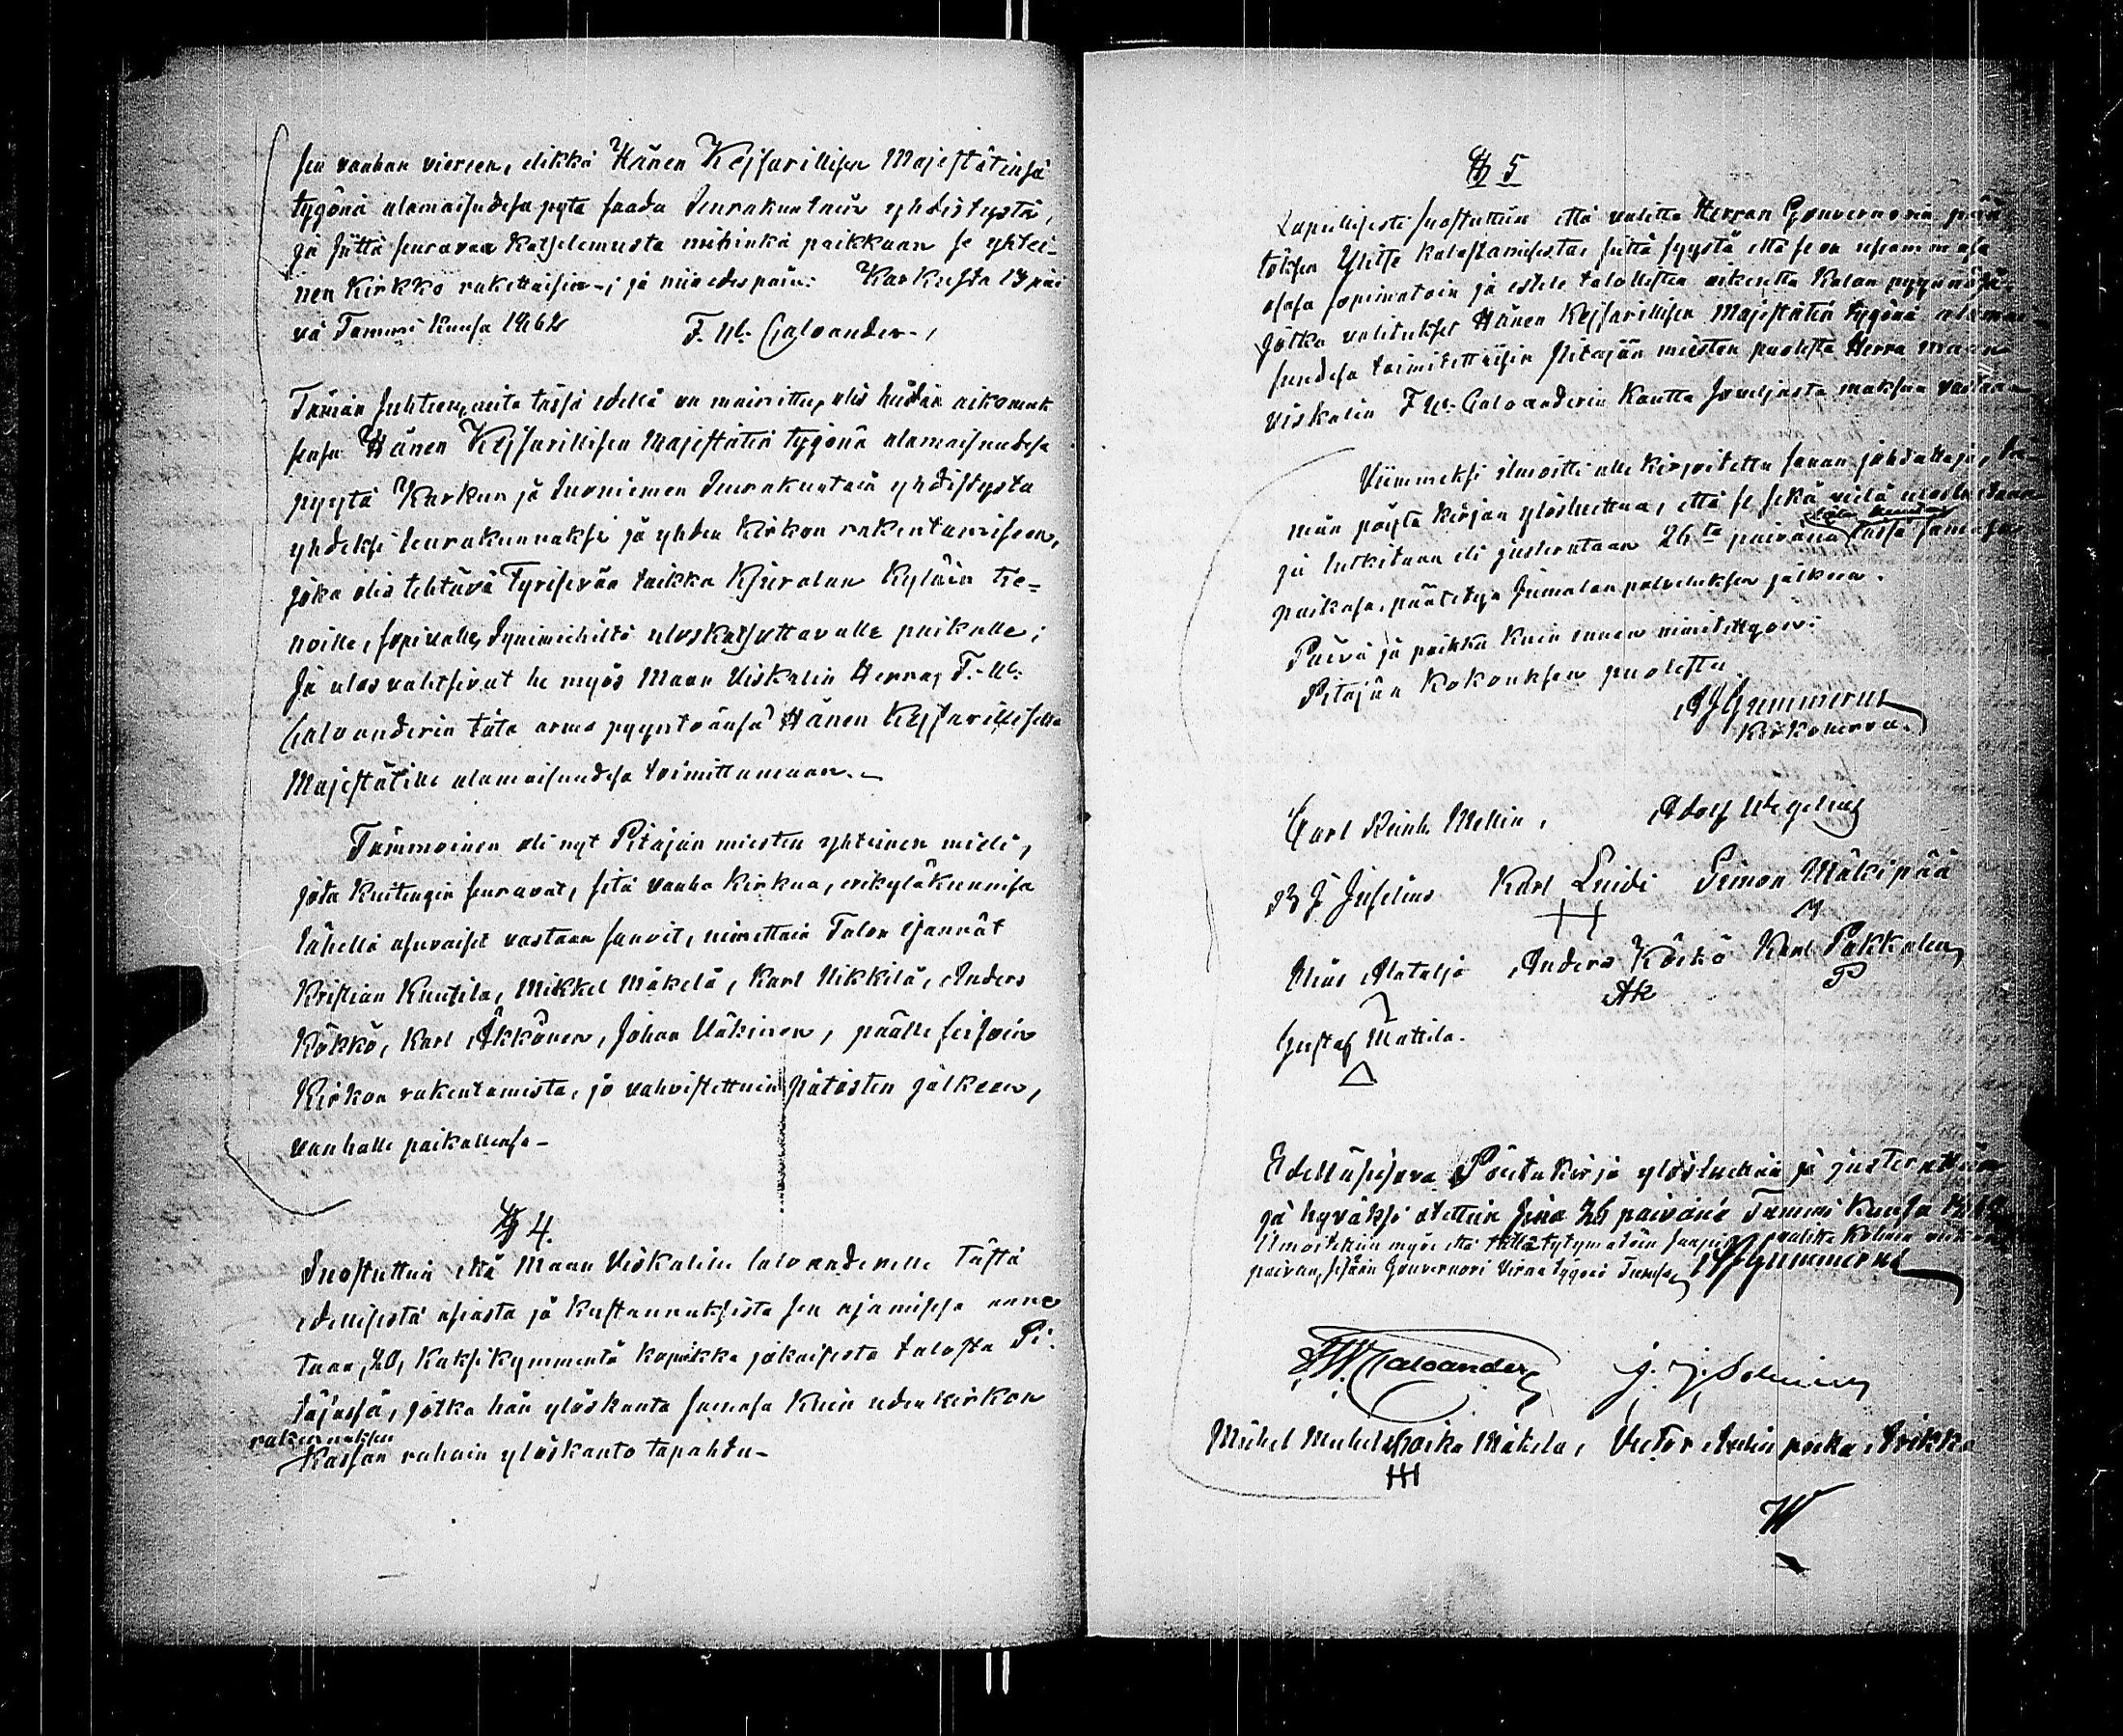 sen vanhan viereen, elikkä Hänen Kejsarillisen Majestätinsä
tygönä alamaisudesa pytä saada Seurakuntain yhdistystä,
ja sittä seuravaa Katselemusta mihinkä paikkaan se yhtei-
nen Kirkko rakettaisin -; ja niin edespäin: Karkusta 13 päi
vä Tammi Kuusa 1862 F. W. Caloander -,
Tämän suhteen, mitä tässä edellä on mainittu, olis heidän aikomuk
sensa Hänen Kejsarillisen Majestätin tygönä alamaisuudesa
pyytä Karkun ja Suoniemen Seurakuntain yhdistystä
yhdeksi seurakunnaksi ja yhden Kirkon rakentamiseen,
joka olis tehtävä Tyrisevän taikka Kjuralan Kyläin tie=
noille, sopivalle, Synimiehiltä uloskatsottavalle paikalle;
Ja ulos valitsivat he myös Maan Viskalin Herra, F. W.
Caloanderin tätä armo pyyntöänsä Hänen Kejsarilliselle
Majestätille alamaisuudesa toimittamaan. -
Tämmöinen oli nyt Pitäjän miesten yhteinen mieli,
jota kuitengin seuravat, sitä vanha Kirkua, erikyläkunnisa
lähellä asuvaiset vastaan sanoit, nimittäin Talon Isännät
Kristian Knutila, Mikkel Mäkelä, Karl Nikkilä, Anders
Kökkö, Karl Äkkönen, Johan Näkinen, päälle seisoin
Kirkon rakentamista, jo vahvistettuin Päätösten jälkeen,
vanhalle paikallensa -
§ 4.
Suostuttiin että Maan Viskalille Caloanderille tästä
edellisestä asiasta ja kustannuksista sen ajamisesa anne
taan, 20, Kaksikymmentä kopeikka jokaisesta talosta Pi-
täjässä, jotka hän ylöskanta samasa kuin uden kirkon
rakennuksen
Kassan rahain ylöskanto tapahtu -
§ 5
Lupullisesti suostuttiin että valitta Herran Gouvernörin pää
töksen Ylitse Kalastamisesta, siittä syystä että se on usiammasa
asiasa sopimatoin ja estele talollisten oikeutta Kalan pyynnösä,
Jotka valitukset Hänen Kejsarillisen Majestätin tygönä alamai-
suudesa toimitettaisin Pitäjän miesten puolesta Herra maan
viskalin F. W. Caloanderin Kautta soveljasta maksua vastaan
Viimmeksi ilmoitti alle kirjoitettu sanan johdattaja, tä-
män pöytä kirjan ylösluettua, että se sekä vielä ylösluetaan
ja tutkitaan eli justerataan 26ta päivänä tässä samasa
paikasa, päätetyn Jumalan palveluksen jälkeen.
Päivä ja paikka kuin ennen nimitetty on:
Pitäjän Kokouksen puolesta
A J Gummerus
Kirkoherra.
Carl Reinh. Mellin, Adolf Wegelius
B J Juselius Karl Luidi Simon Mäkipää
M
Elias Alatalo Anders Kökkö Karl Pakkalen
AK P
Gustaf Mattila.
Edelläseisova Pöutäkirja ylösluettiin ja justerattiin
ja hyväksi otettiin sinä 26 päivänä Tammi Kuusa 1862
F. W. Caloander J. J. Solenius
Michel Michelspoika Mäkelä, Victor Antin poika Arikka
HH
W